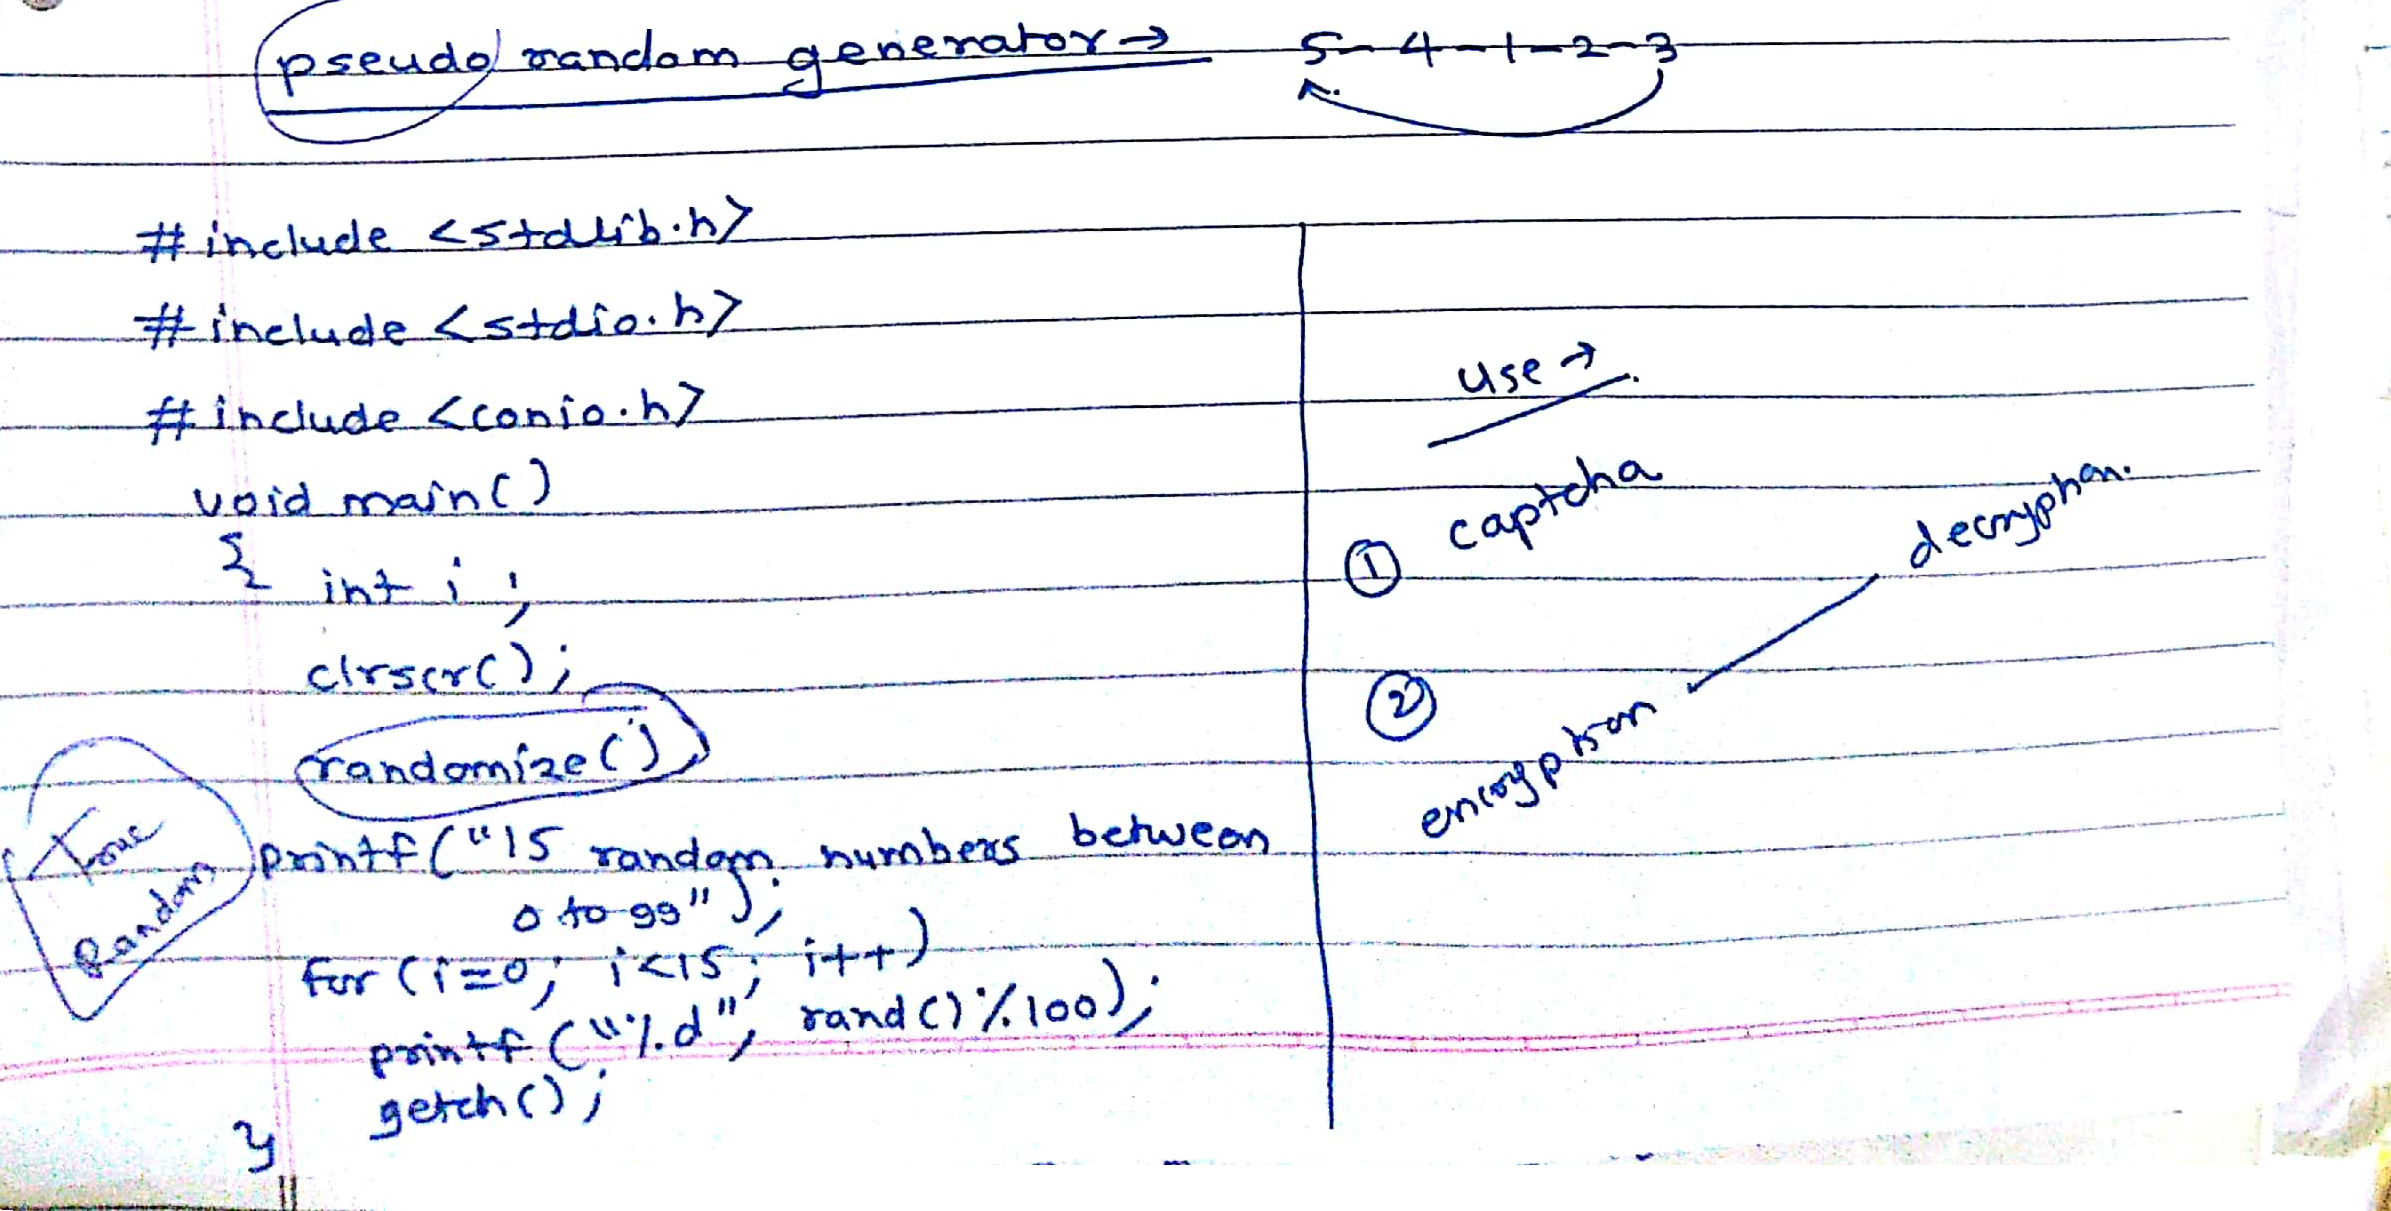 pseudo random generator → 5-4-1-2-3
#include <stdlib.h>
#include <stdio.h>
#include <conio.h>
void main()
{
int i;
clrscr();
randomize();
True
Random
printf("15 random numbers between
0 to 99");
for (i=0; i<15; i++)
printf("%d", rand()%100);
getch();
}
use →
① captcha
② encryption
decryption.